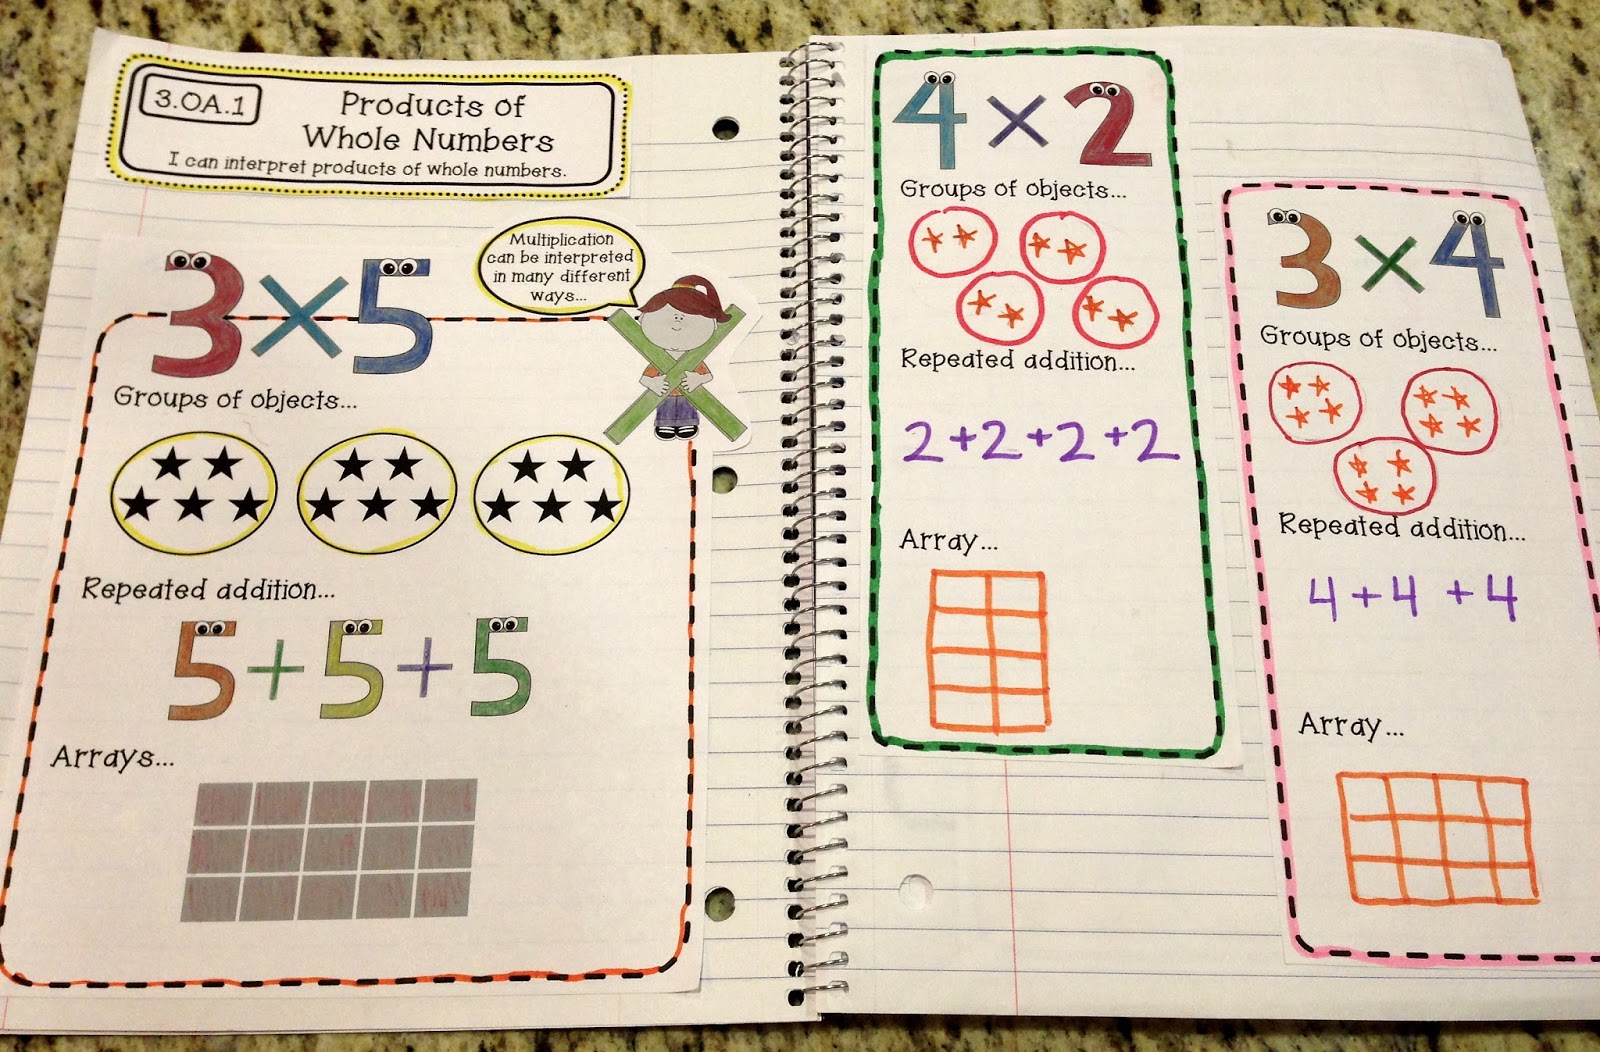 3.OA.1
Products of
Whole Numbers
I can interpret products of whole numbers.
Multiplication
can be interpreted
in many different
ways...
3×5
Groups of objects...
Repeated addition...
5+5+5
Arrays...
4×2
Groups of objects...
Repeated addition...
2+2+2+2
Array...
3×4
Groups of objects...
Repeated addition...
4+4+4
Array...